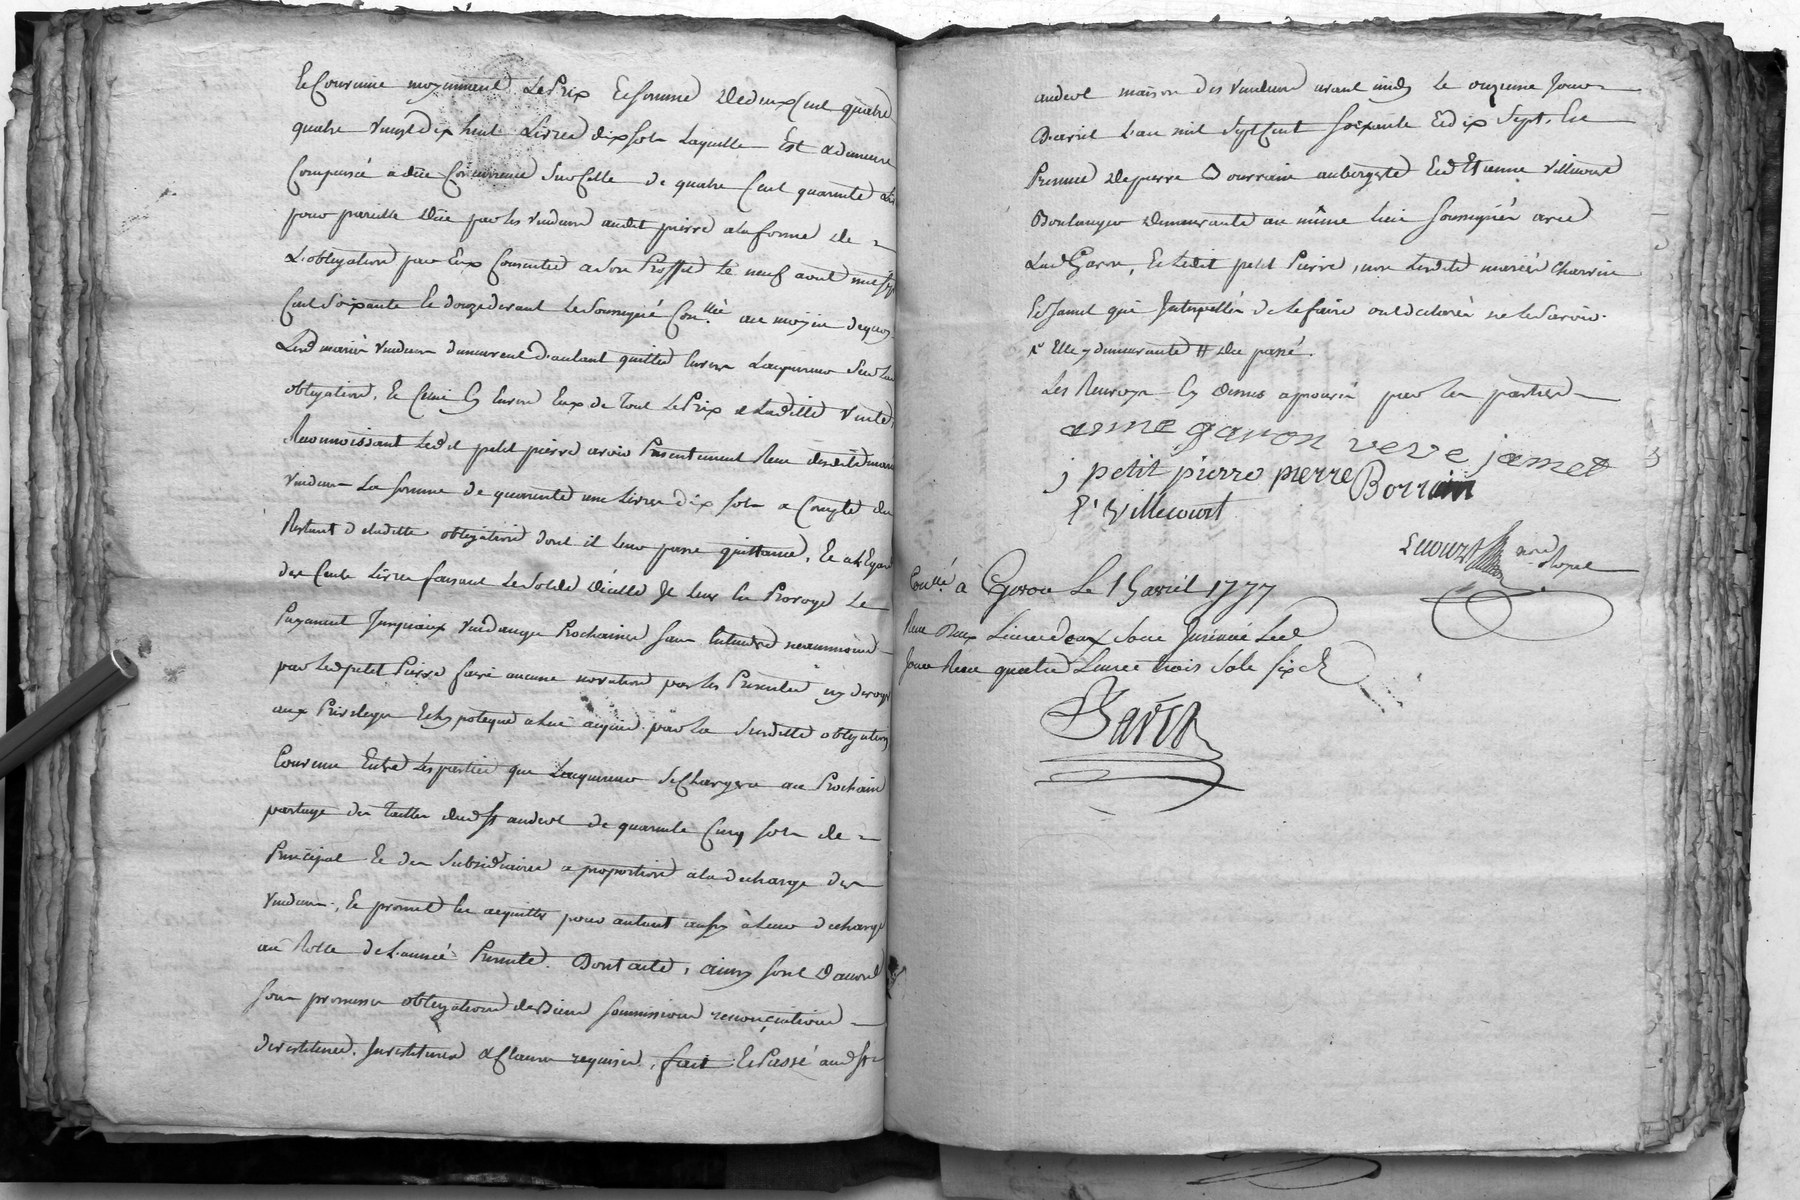 Et Convenue moyennant Le Prix Et Somme De deux Cent quatre
quatre vingt Dix huit Livres dix sols Laquelle Est demeuré
Compensée a düe Concurrence Sur Celle de quatre Cent quarante
pour pareille düe par les vendeurs audit pierre a la forme de
L'obligation par Eux Consentie a Son Proffit Le neuf avril mil sept
Cent Soixante Et douze devant Le Soussigné Con.llé au moyen de quoy
Lesd mariés vendeurs demeurent d'autant quittes Envers Laquereur Sur Lad
obligation, Et Celui Cy Envers Eux de tout Le Prix de Laditte vente
Reconnoissant Led petit pierre avoir Presentement Receu desdits mariés
vendeurs La Somme de quarante une Livres dix sols a Compte du
Restant de laditte obligation dont il Leur passe quittance, Et a L'Egard
des Cents Livres faisant Le Solde d'icelle Il Leur En Proroge Le
Payement Jusquaux vendanges Prochaines sans Entendre neanmoins
par Led petit Pierre faire aucune novation par les Presentes ny deroger
aux Privileges Et hypoteques a lui acquis par La Susditte obligation
Convenu Entre Les parties que Laquereur Se Chargera au Prochain
partage des tailles dud St andeol de quarante Cinq sols de
Principal Et des Subsidiaires a proportion a la decharge des
vendeurs, Et promet les acquitter pour autant aussy à Leur decharge
au Rolle de L'année Presente. Dont acte, ainsy sont d'accord
sous promesses obligations de Biens soumissions renonciations
devestitures Investitures & clauses requises, fait Et Passé aud St
andeol maison des vendeurs avant midy Le onzieme Jour
D'avril L'an mil Sept Cent Soixante Et dix Sept. En
Presence De pierre Bourrain aubergiste Et d'Etienne Villecourt
Boulanger Demeurants au même lieu Soussignés avec
Lad Garon, Et Ledit petit Pierre, non Lesdits mariés Charvin
Et Jamet qui Interpellés de le faire ont déclarés ne le Savoir.
Elle y demeurante # De passé.
Les Renvoys Cy dessus aprouvés par les parties
anne garon veve jamet
j petit pierre pierre Borrain
E. Villecourt
nore Royal
Con.llé à Givors Le 15 avril 1777
Receu Deux Livres Jnsinué Led
Jour Receu quatre Livres trois Sols six d